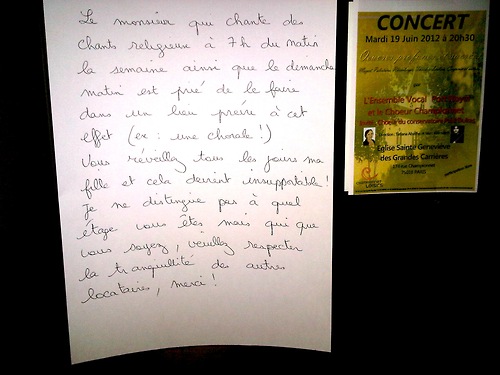 Le monsieur qui chante des
chants religieux à 7h du matin
la semaine ainsi que le dimanche
matin est prié de le faire
dans un lieu prévu à cet
effet (ex : une chorale !)
Vous réveillez tous les jours ma
fille et cela devient insupportable !
Je ne distingue pas à quel
étage vous êtes mais qui que
vous soyez, veuillez respecter
la tranquillité des autres
locataires, merci !
CONCERT
Mardi 19 Juin 2012 à 20h30
L'Ensemble Vocal
et le Choeur
Eglise Sainte Geneviève
des Grandes Carrières